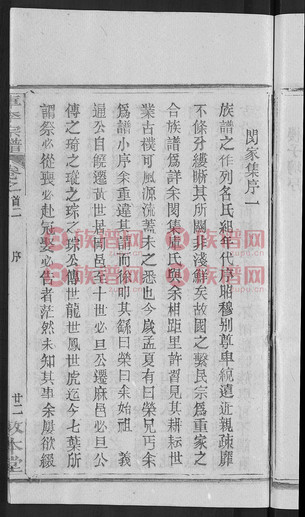 閔家集序一
族譜之作列名氏紀年代序昭穆别尊卑統遠近親疎靡
不條分縷晰其所關非淺鮮矣故國之繫民宗爲重家之
合族譜爲詳余閔集盧氏與余相距里許習見其耕耘世
業古樸可風源流蓋未之悉也今歲孟夏有曰榮兄丐余
爲譜小序余重違其請而徐叩其繇曰榮曰余始祖 義
通公自饒遷黃世居岡邑至十世必旦公遷麻邑必旦公
傳之琦之瑷之琮 公傳世龍世鳳世虎迄今七葉所
謂祭必從喪必赴冠娶必告者茫然未知其事余屢欲綴
宗譜 卷之首二 序 廿二 敦本堂
族譜网